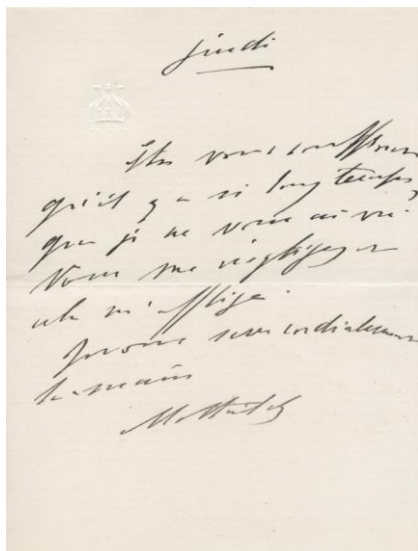 Jeudi
Etes vous souffrant
qu'il y a si longtemps
que je ne vous ai vu
Vous me négligez et
cela m'afflige.
Je vous serre cordialement
la main
Mathilde